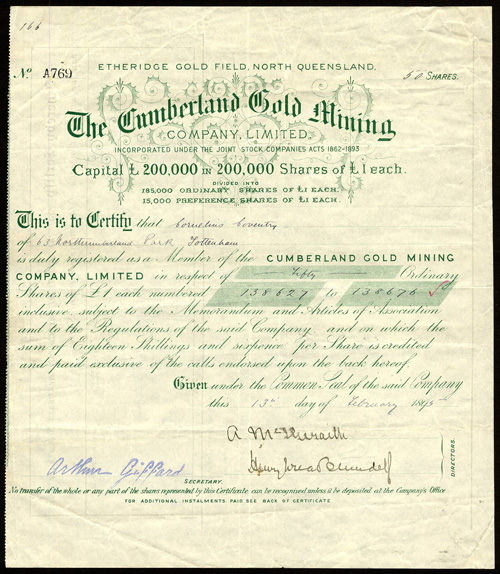 166
ETHERIDGE GOLD FIELD, NORTH QUEENSLAND.
No A769
50 SHARES.
The Cumberland Gold Mining
COMPANY, LIMITED.
INCORPORATED UNDER THE JOINT STOCK COMPANIES ACTS 1862-1893
Capital £200,000 IN 200,000 Shares of £1 each.
DIVIDED INTO
185,000 ORDINARY SHARES OF £1 EACH.
15,000 PREFERENCE SHARES OF £1 EACH.
This is to Certify that Cornelius Coventry
of 63 Northumberland Park Tottenham
is duly registered as a Member of the CUMBERLAND GOLD MINING
COMPANY, LIMITED in respect of Fifty Ordinary
Shares of £1 each numbered 138627 to 138676
inclusive, subject to the Memorandum and Articles of Association
and to the Regulations of the said Company, and on which the
sum of Eighteen Shillings and sixpence per Share is credited
and paid exclusive of the calls endorsed upon the back hereof.
Given under the Common Seal of the said Company
this 13th day of February 1895
A
Arthur Giffard
SECRETARY.
DIRECTORS.
No transfer of the whole or any part of the shares represented by this Certificate, can be recognised unless it be deposited at the Company's Office
FOR ADDITIONAL INSTALMENTS PAID SEE BACK OF CERTIFICATE